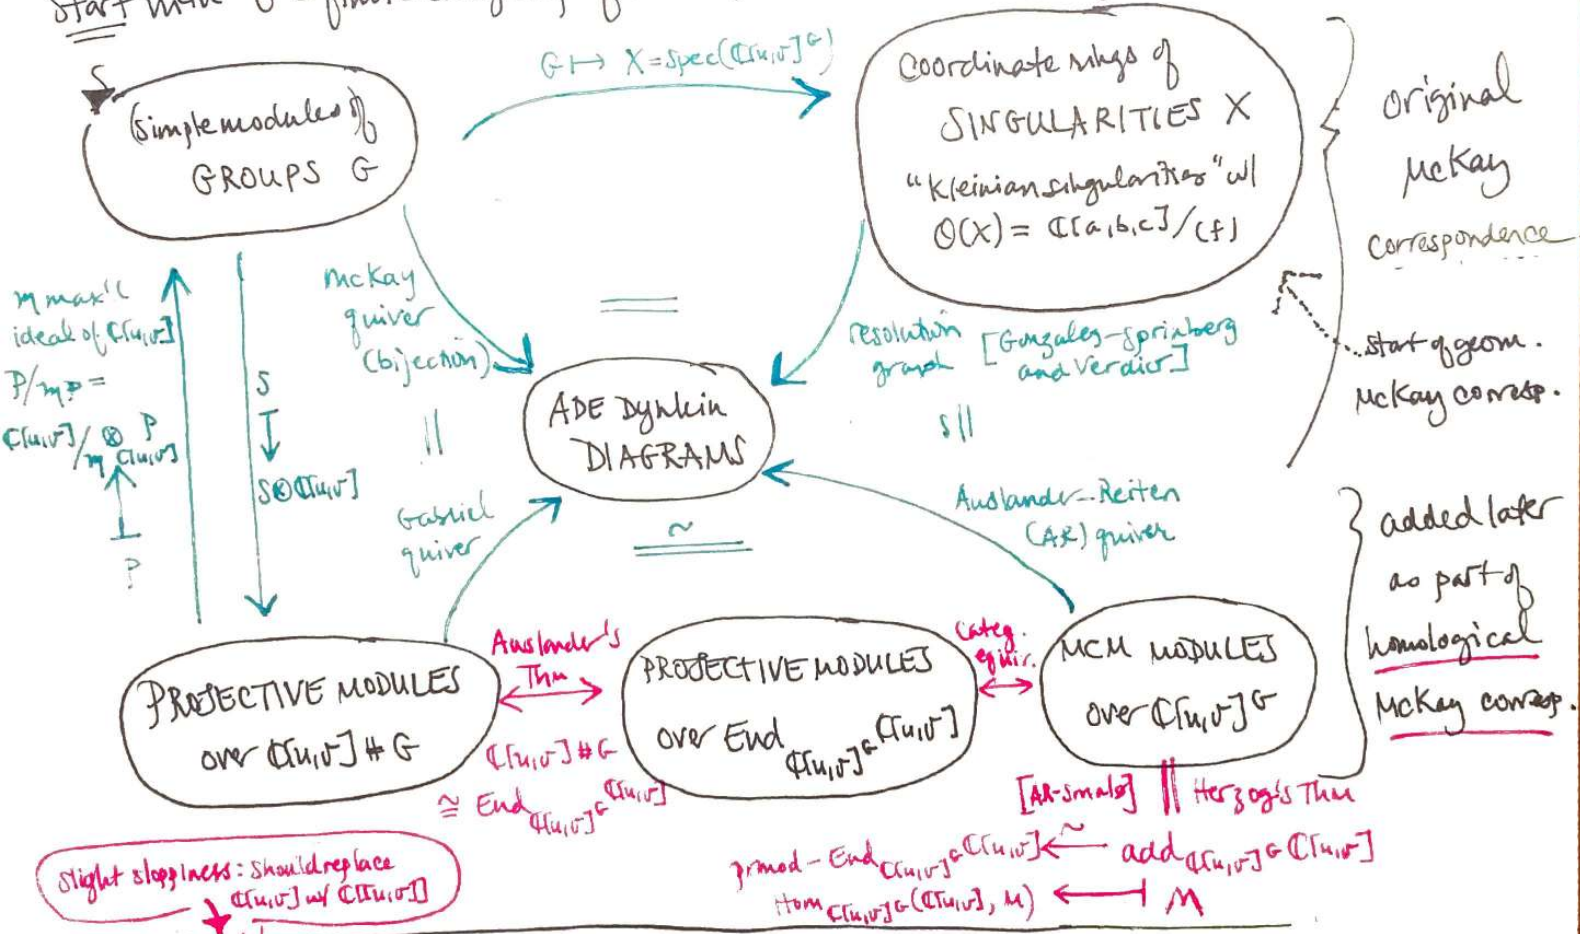 Start with
S
(simple modules of
GROUPS G
G ↦ X = Spec(ℂ[u,v]^G)
Coordinate rings of
SINGULARITIES X
"Kleinian singularities" w/
O(X) = ℂ[a,b,c]/(f)
original
McKay
correspondence
start of geom.
McKay corresp.
m max'l
ideal of ℂ[u,v]
P/mP =
ℂ[u,v]/m ⊗_ℂ[u,v] P
↑
P
S
↓
S⊗ℂ[u,v]
McKay
quiver
(bijection)
=
||
resolution
graph
[Gonzales-Sprinberg
and Verdier]
S||
ADE Dynkin
DIAGRAMS
~
Gabriel
quiver
Auslander-Reiten
(AR) quiver
added later
as part of
homological
McKay corresp.
PROJECTIVE MODULES
over ℂ[u,v] # G
Auslander's
Thm
ℂ[u,v] # G
≅ End_ℂ[u,v]^G ℂ[u,v]
PROJECTIVE MODULES
over End_ℂ[u,v]^G ℂ[u,v]
Categ.
equiv.
MCM MODULES
over ℂ[u,v]^G
[AR-Smalø] || Herzog's Thm
prmod-End_ℂ[u,v]^G ℂ[u,v] ←~ add_ℂ[u,v]^G ℂ[u,v]
Hom_ℂ[u,v]^G(ℂ[u,v], M) ↤ M
slight sloppiness: should replace
ℂ[u,v] w/ ℂ[[u,v]]